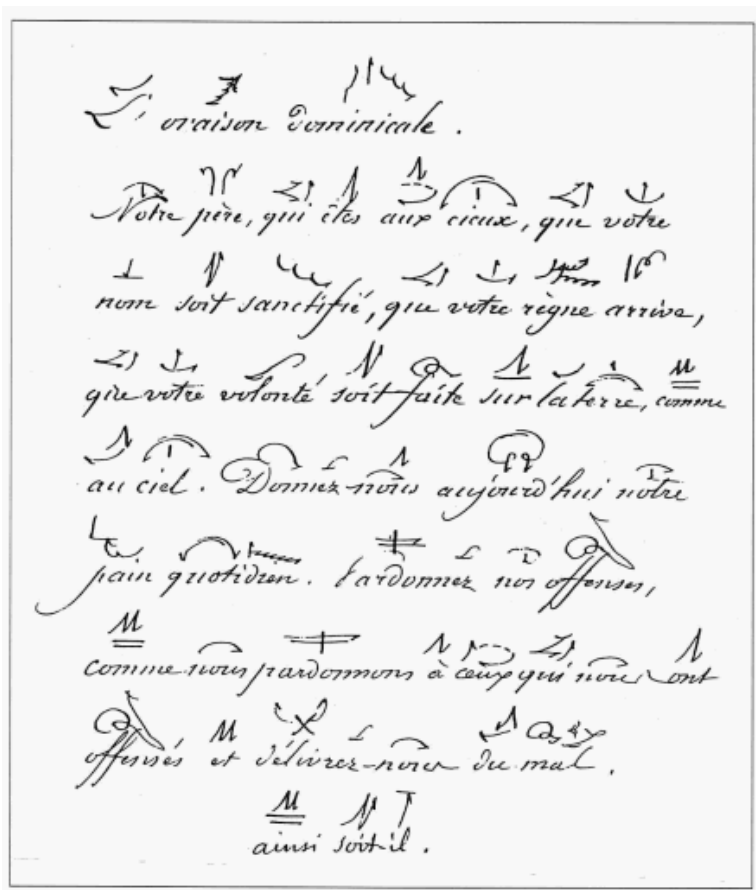 L'oraison Dominicale.
Notre père, qui êtes aux cieux, que votre
nom soit sanctifié, que votre règne arrive,
que votre volonté soit faite sur la terre, comme
au ciel. Donnez-nous aujourd'hui notre
pain quotidien. Pardonnez nos offenses,
comme nous pardonnons à ceux qui nous ont
offensés et délivrez-nous du mal.
ainsi soit-il.